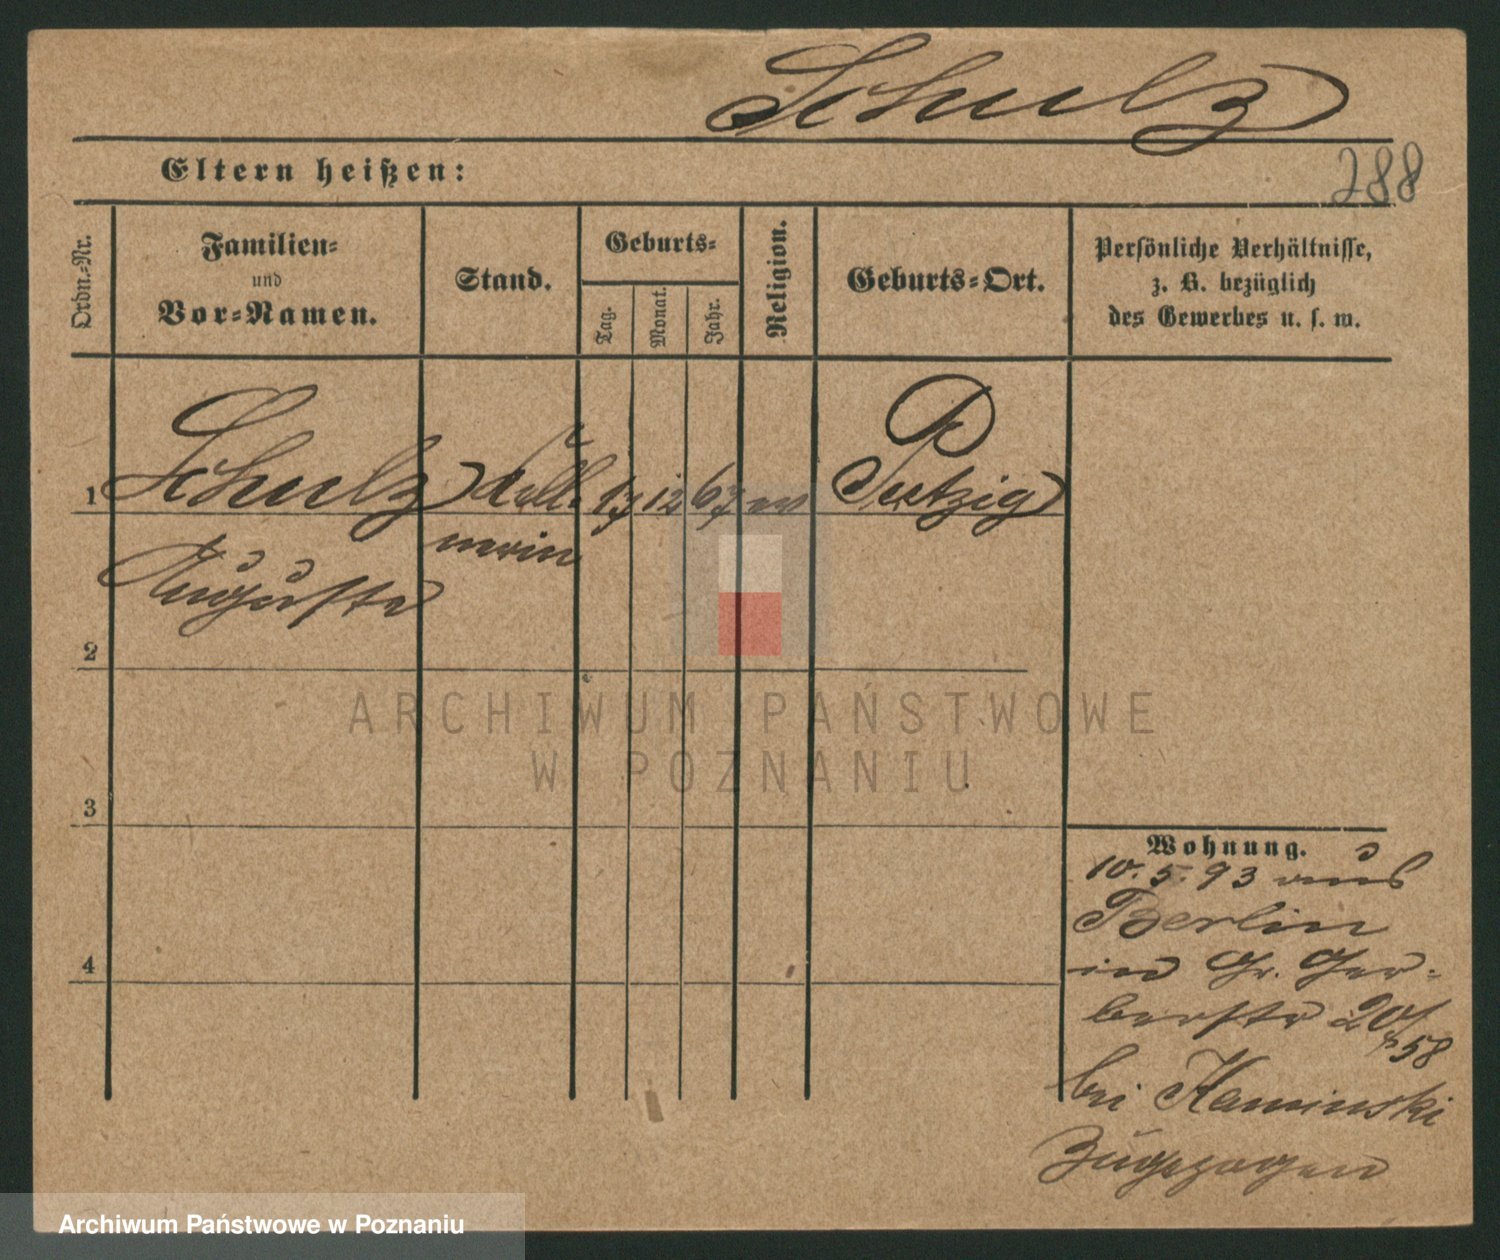 Schulz
288
Eltern heißen:
Ordn.-Nr.
Familien-
und
Vor-Namen.
Stand.
Geburts-
Tag.
Monat.
Jahr.
Religion.
Geburts-Ort.
Persönliche Verhältnisse,
z. B. bezüglich
des Gewerbes u. s. w.
1 Schulz Kell- 17 12 67 ev Putzig
nerin
Auguste
2
3
4
ARCHIWUM PAŃSTWOWE
W POZNANIU
Wohnung.
10. 5. 93 aus
Berlin
in Gr. Ger-
berstr 20/
58
bei Kaminski
zugezogen
Archiwum Państwowe w Poznaniu